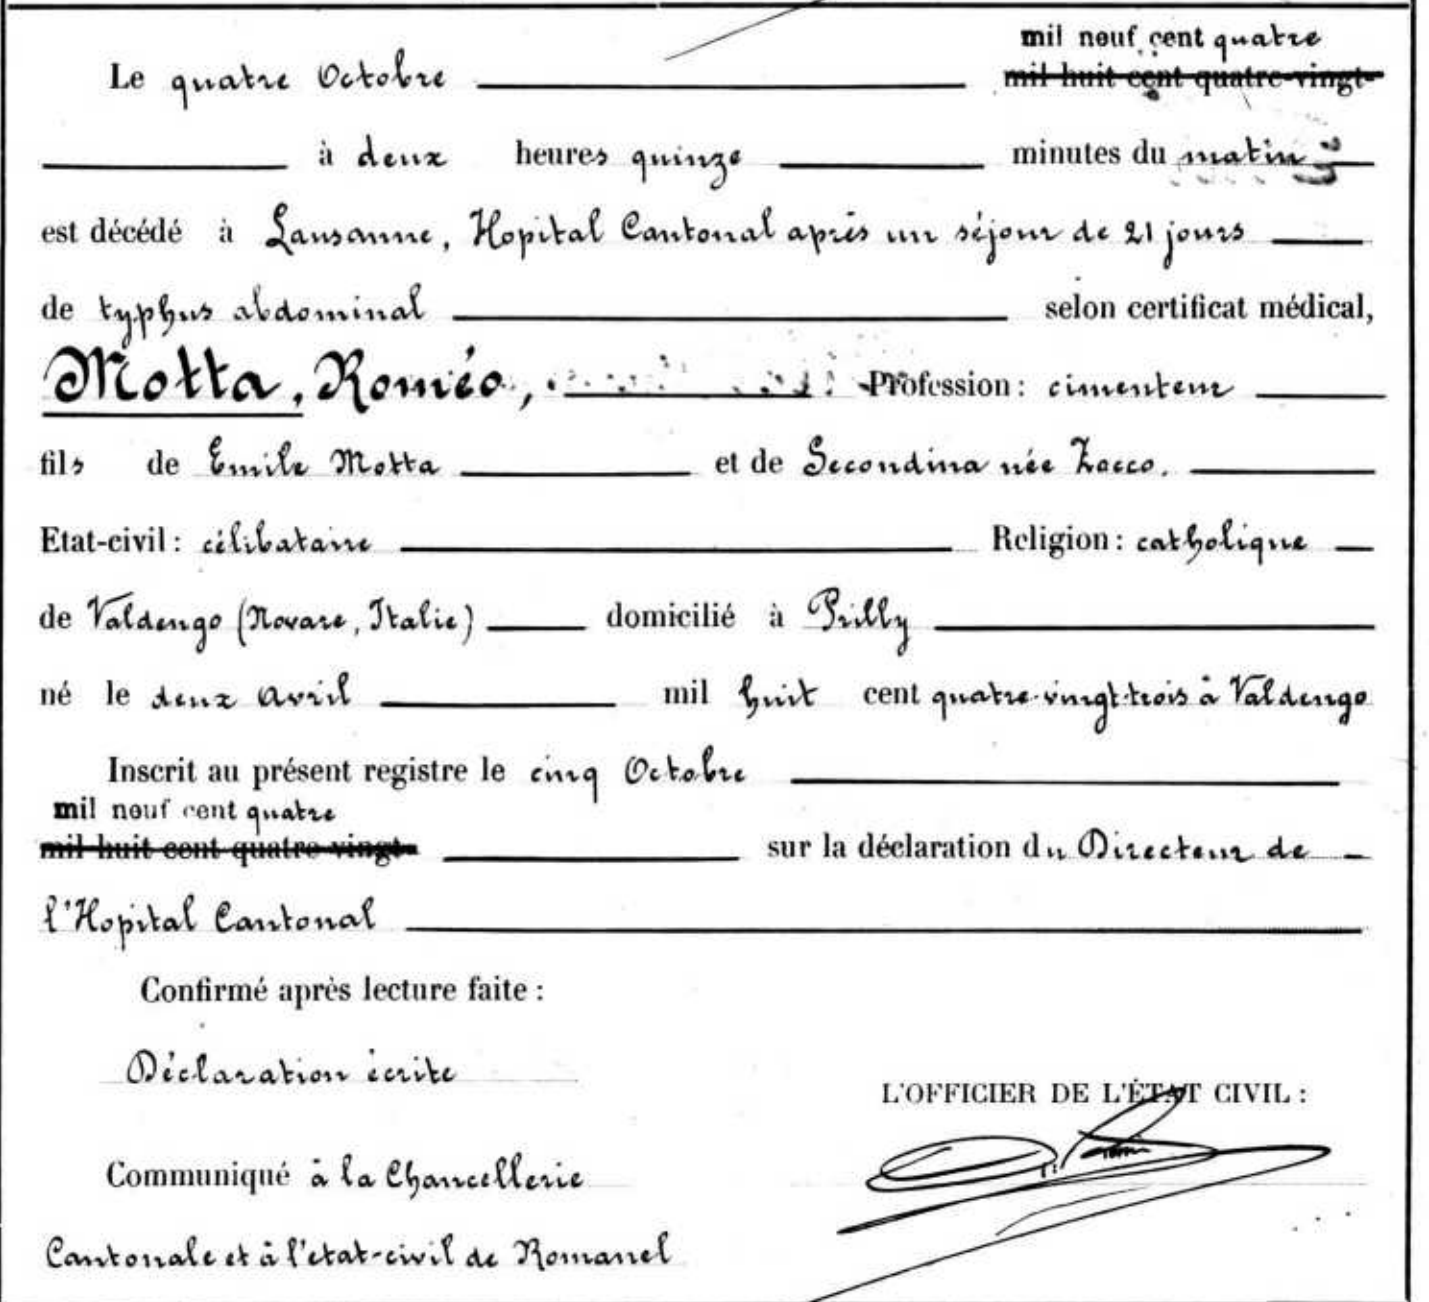 mil neuf cent quatre
Le quatre Octobre mil huit cent quatre-vingt-
à deux heures quinze minutes du matin
est décédé à Lausanne, Hopital Cantonal après un séjour de 21 jours
de typhus abdominal selon certificat médical,
Motta, Roméo, Profession : cimenteur
fils de Emile Motta et de Secondina née Zacco.
Etat-civil : célibataire Religion : catholique
de Valdengo (Novare, Italie) domicilié à Prilly
né le deux Avril mil huit cent quatre-vingt-trois à Valdengo
Inscrit au présent registre le cinq Octobre
mil neuf cent quatre
mil huit cent quatre-vingt- sur la déclaration du Directeur de
l'Hopital Cantonal
Confirmé après lecture faite :
Déclaration écrite
L'OFFICIER DE L'ÉTAT CIVIL :
Communiqué à la Chancellerie
Cantonale et à l'etat-civil de Romanel